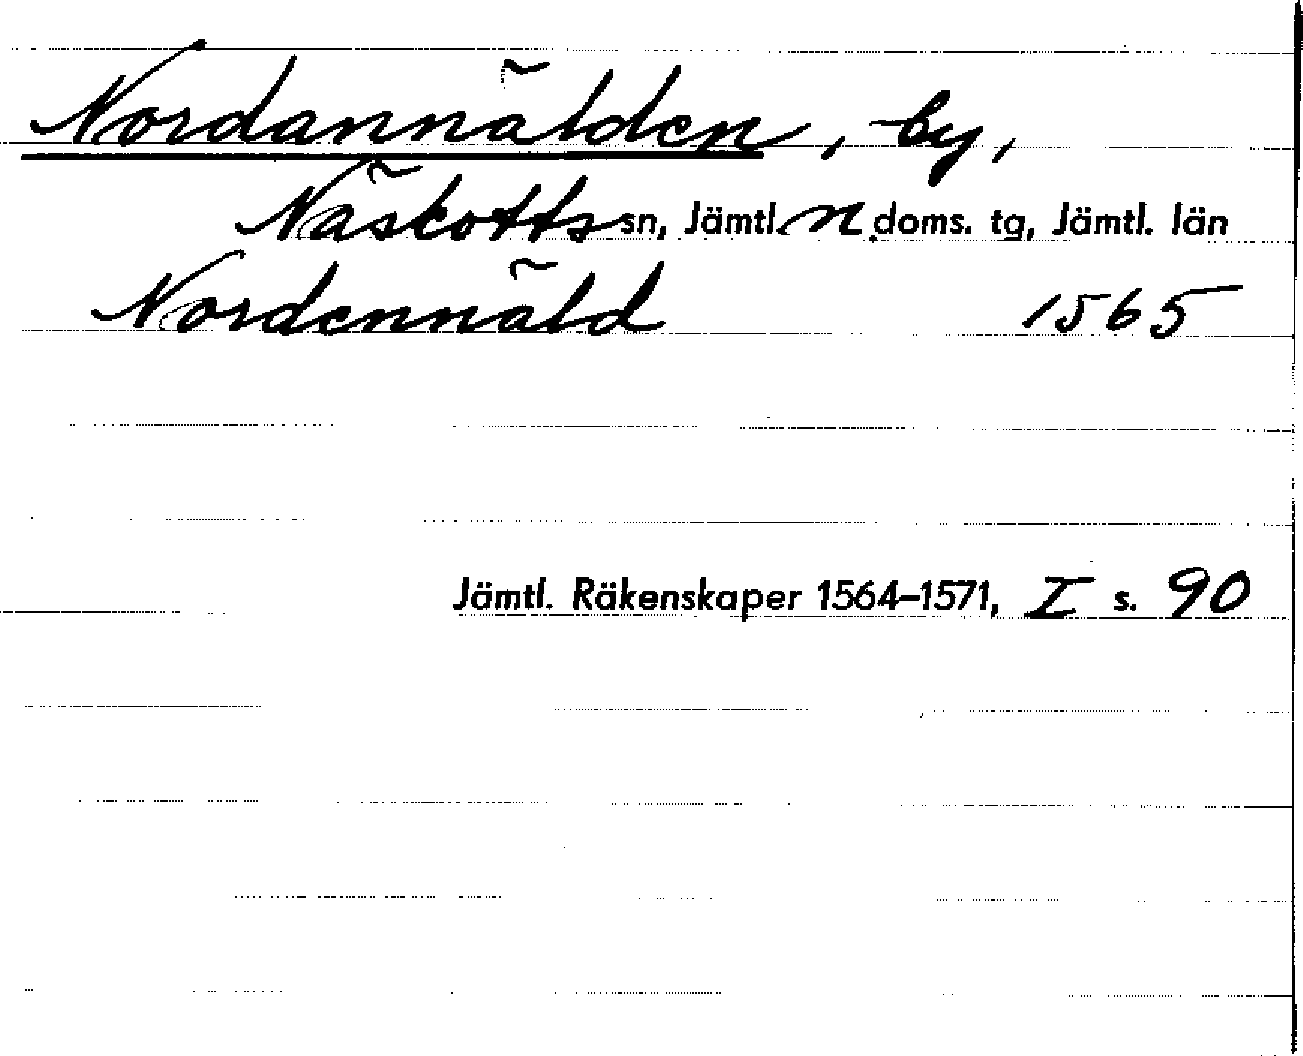 Nordannälden, by,
Näskotts sn, Jämtl. n doms. tg, Jämtl. län
Nordennäld 1565
Jämtl. Räkenskaper 1564–1571, I s. 90